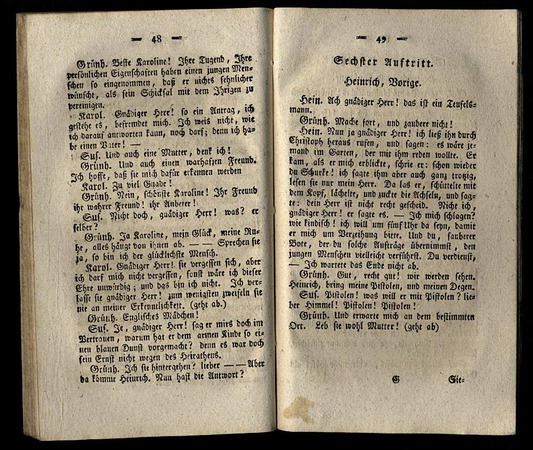 — 48 —
Grünh. Beste Karoline! Ihre Tugend, Ihre
persönlichen Eigenschaften haben einen jungen Men-
schen so eingenommen, daß er nichts sehnlicher
wünscht, als sein Schicksal mit dem Ihrigen zu
vereinigen.
Karol. Gnädiger Herr! so ein Antrag, ich
gestehe es, befremdet mich. Ich weis nicht, wie
ich darauf antworten kann, noch darf; denn ich ha-
be einen Vater! —
Sus. Und auch eine Mutter, denk ich!
Grünh. Und auch einen warhaften Freund.
Ich hoffe, daß sie mich dafür erkennen werden
Karol. Zu viel Gnade!
Grünh. Nein, schönste Karoline! Ihr Freund
ihr wahrer Freund! ihr Anbeter!
Sus. Nicht doch, gnädiger Herr! was? er
selber?
Grünh. Ja Karoline, mein Glück, meine Ru-
he, alles hängt von ihnen ab. — — Sprechen sie
ja, so bin ich der glücklichste Mensch.
Karol. Gnädiger Herr! sie vergessen sich, aber
ich darf mich nicht vergessen, sonst wäre ich dieser
Ehre unwürdig; und das bin ich nicht. Ich ver-
lasse sie gnädiger Herr! zum wenigsten zweifeln sie
nie an meiner Erkenntlichkeit. (geht ab.)
Grünh. Englisches Mädchen!
Sus. Je, gnädiger Herr! sag er mirs doch im
Vertrauen, warum hat er dem armen Kinde so ei-
nen blauen Dunst vorgemacht? denn es war doch
sein Ernst nicht wegen des Heirathens.
Grünh. Ich sie hintergehen? lieber — — Aber
da kömmt Heinrich. Nun hast die Antwort?
— 49 —
Sechster Auftritt.
Heinrich, Vorige.
Hein. Ach gnädiger Herr! das ist ein Teufels-
mann.
Grünh. Mache fort, und zaudere nicht!
Hein. Nun ja gnädiger Herr! ich ließ ihn durch
Christoph heraus rufen, und sagen: es wäre je-
mand im Garten, der mit ihm reden wollte. Er
kam, als er mich erblickte, schrie er: schon wieder
du Schurke! ich sagte ihm aber auch ganz trozig,
lesen sie nur mein Herr. Da las er, schüttelte mit
dem Kopf, lächelte, und zuckte die Achseln, und sag-
te: dein Herr ist nicht recht gescheid. Nicht ich,
gnädiger Herr! er sagte es. — Ich mich schlagen?
wie kindisch! ich will um fünf Uhr da seyn, damit
er mich um Verzeihung biete. Und du, sauberer
Bote, der du solche Aufträge übernimmst, den
jungen Menschen vielleicht verführst. Du verdienst,
— Ich wartete das Ende nicht ab.
Grünh. Gut, recht gut! wir werden sehen.
Heinrich, bring meine Pistolen, und meinen Degen.
Sus. Pistolen! was will er mit Pistolen? lie-
ber Himmel! Pistolen! Pistolen!
Grünh. Und erwarte mich an dem bestimmten
Ort. Leb sie wohl Mutter! (geht ab)
G Sie-